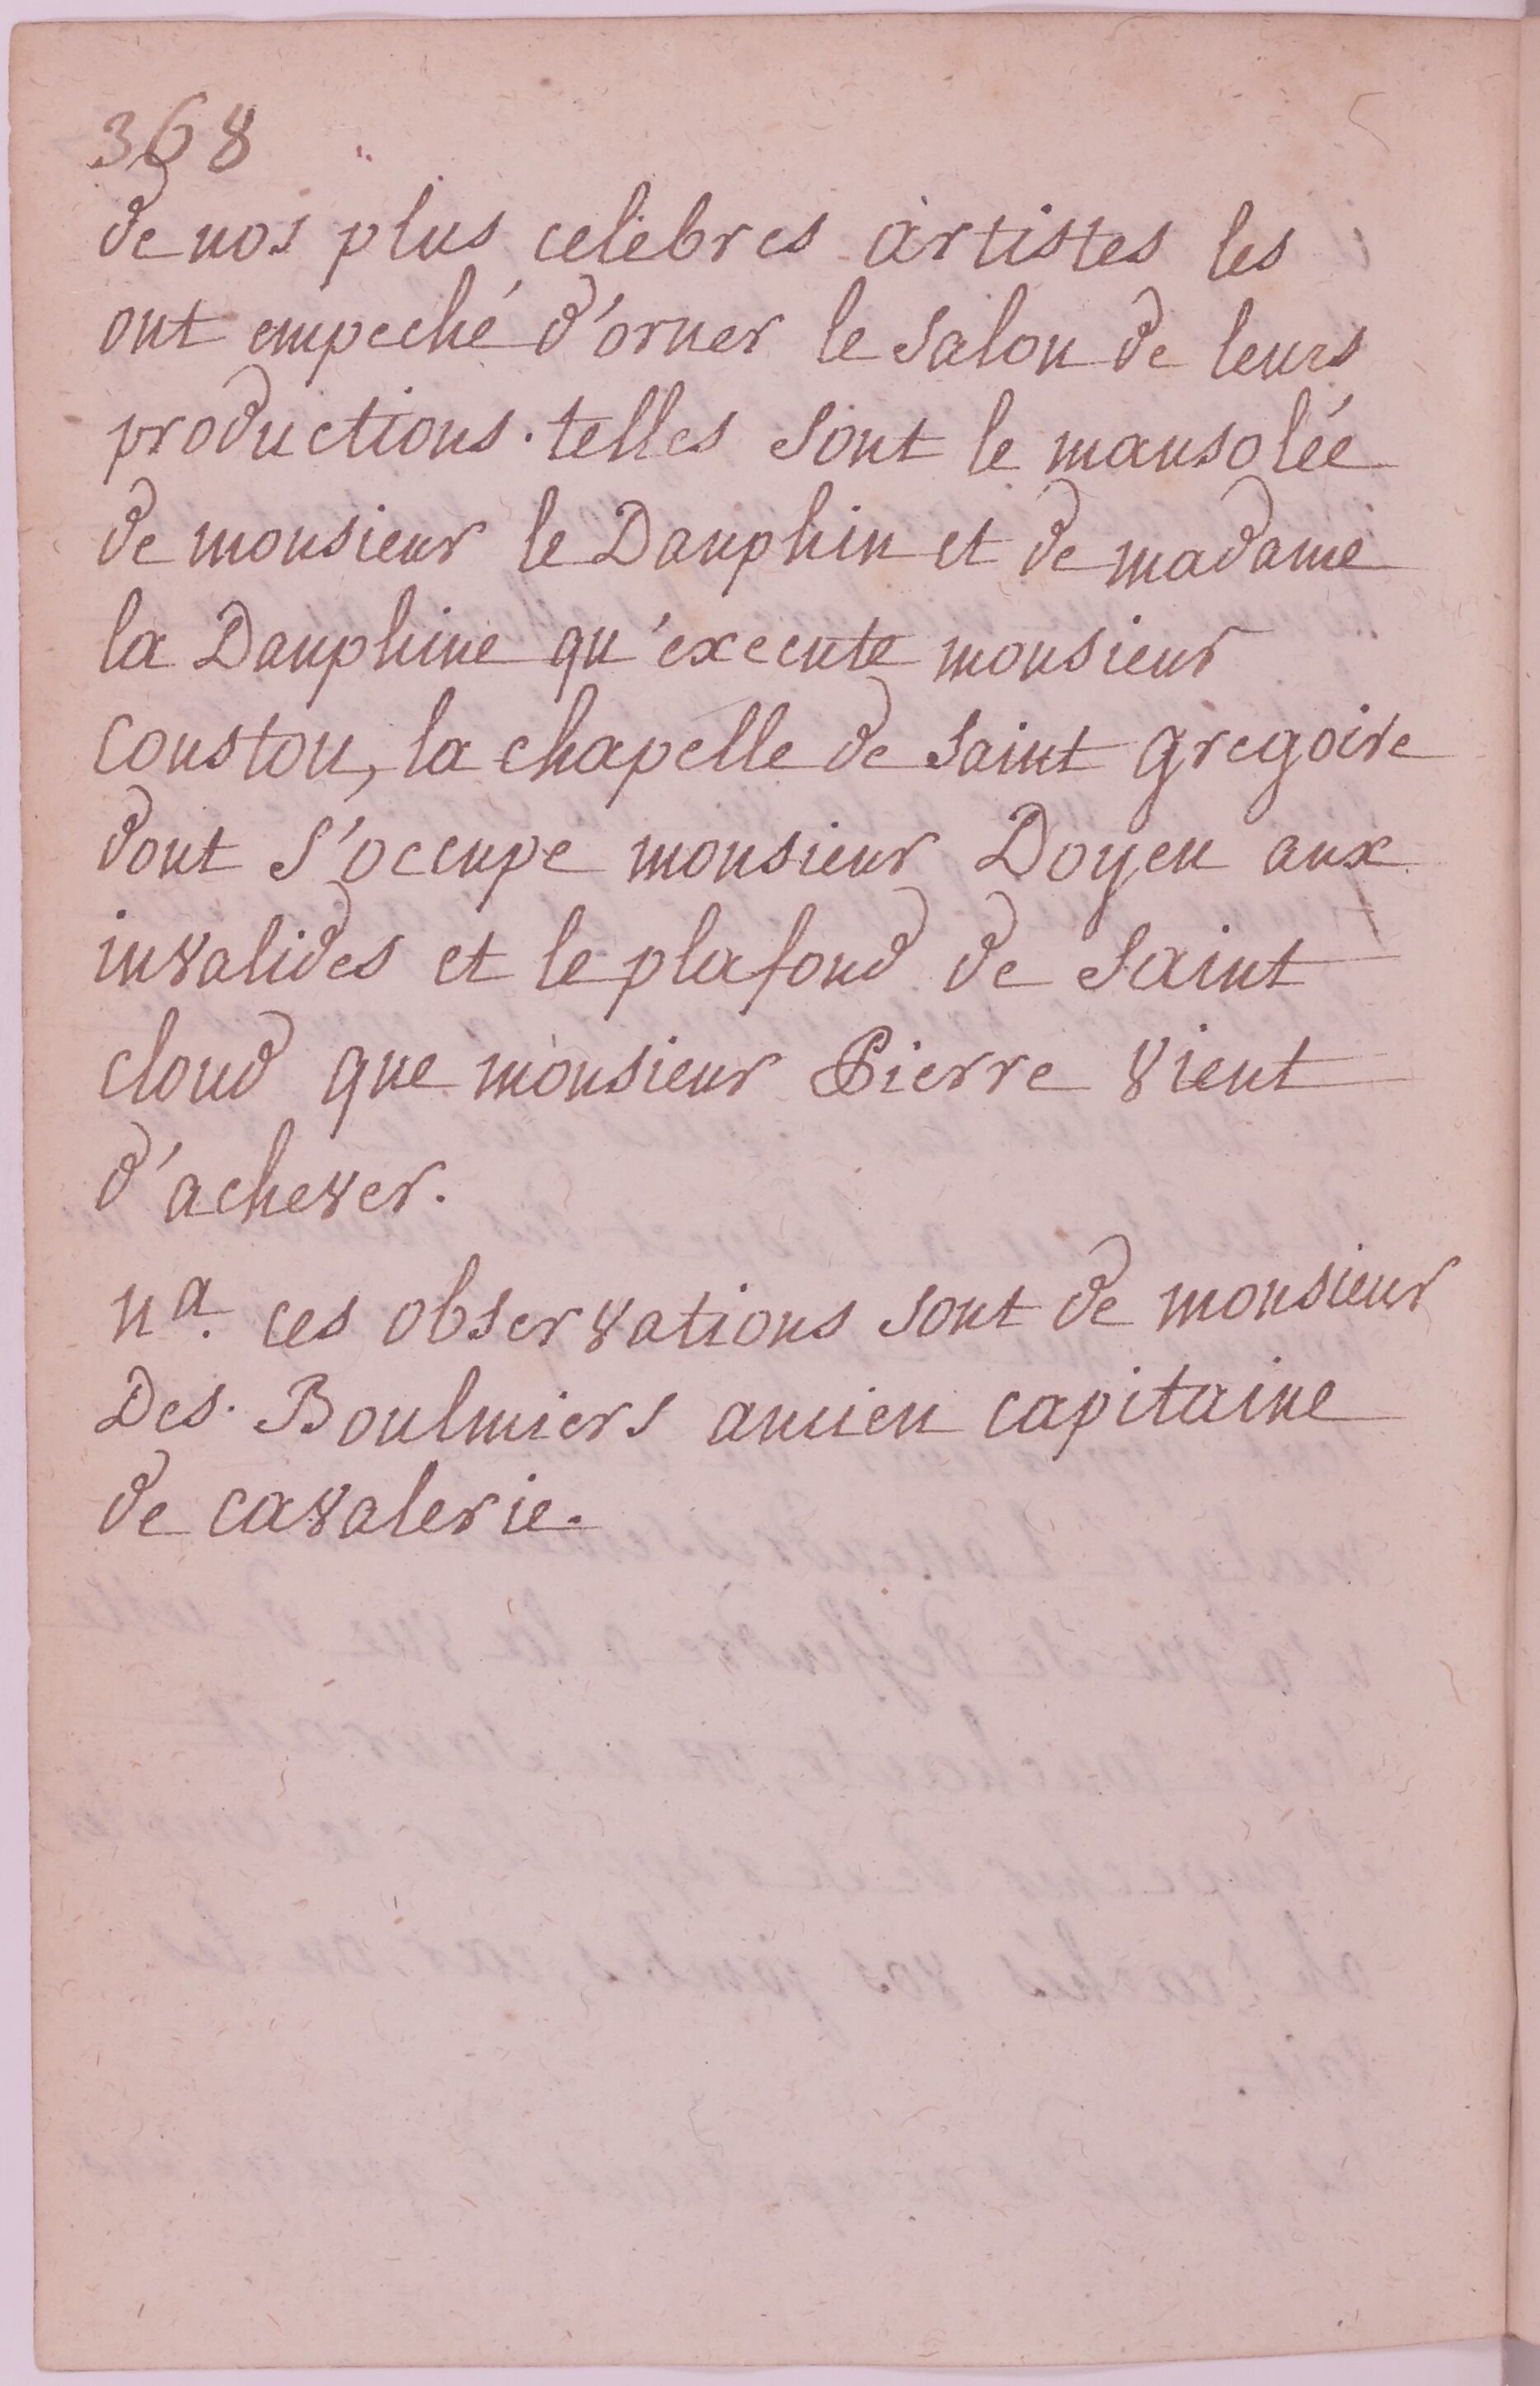 368
de nos plus celebres artistes les
ont empeché d'orner le salon de leurs
productions. telles sont le mausolée
de monsieur le Dauphin et de madame
la Dauphine qu'execute monsieur
coustou, la chapelle de saint gregoire
dont s'occupe monsieur Doyen aux
invalides et le plafond de saint
cloud que monsieur Pierre vient
d'achever.
na. ces observations sont de monsieur
Des. Boulmiers ancien capitaine
de cavalerie.